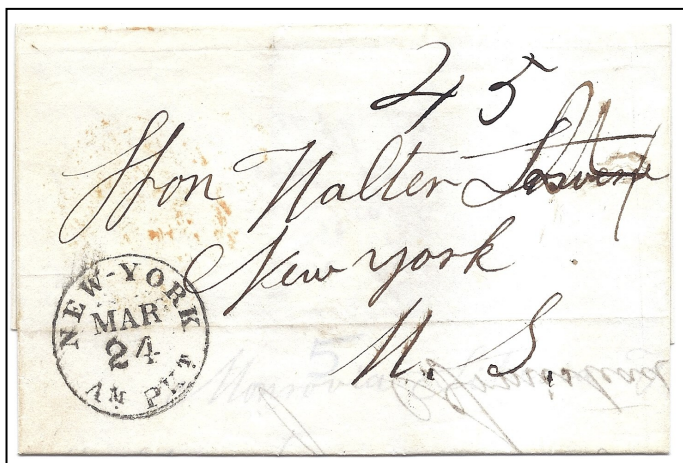 45
Hon Walter Lowrie
New York
U. S.
NEW-YORK
MAR
24
AM PKT
5